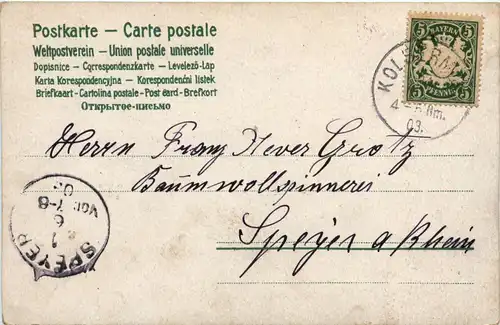 Postkarte — Carte postale
Weltpostverein — Union postale universelle
Dopisnice — Correspondenzkarte — Levelező-Lap
Karta Korespondencyjna — Korespondenční lístek
Briefkaart - Cartolina postale - Post card - Brefkort
Открытое-письмо
BAYERN
5 5
5 PFENNIG 5
4
Nm.
03.
Herrn Franz Xever Grotz
Baumwollspinnerei
Speyer a Rhein
SPEYER
1
6
Vor. 7-8